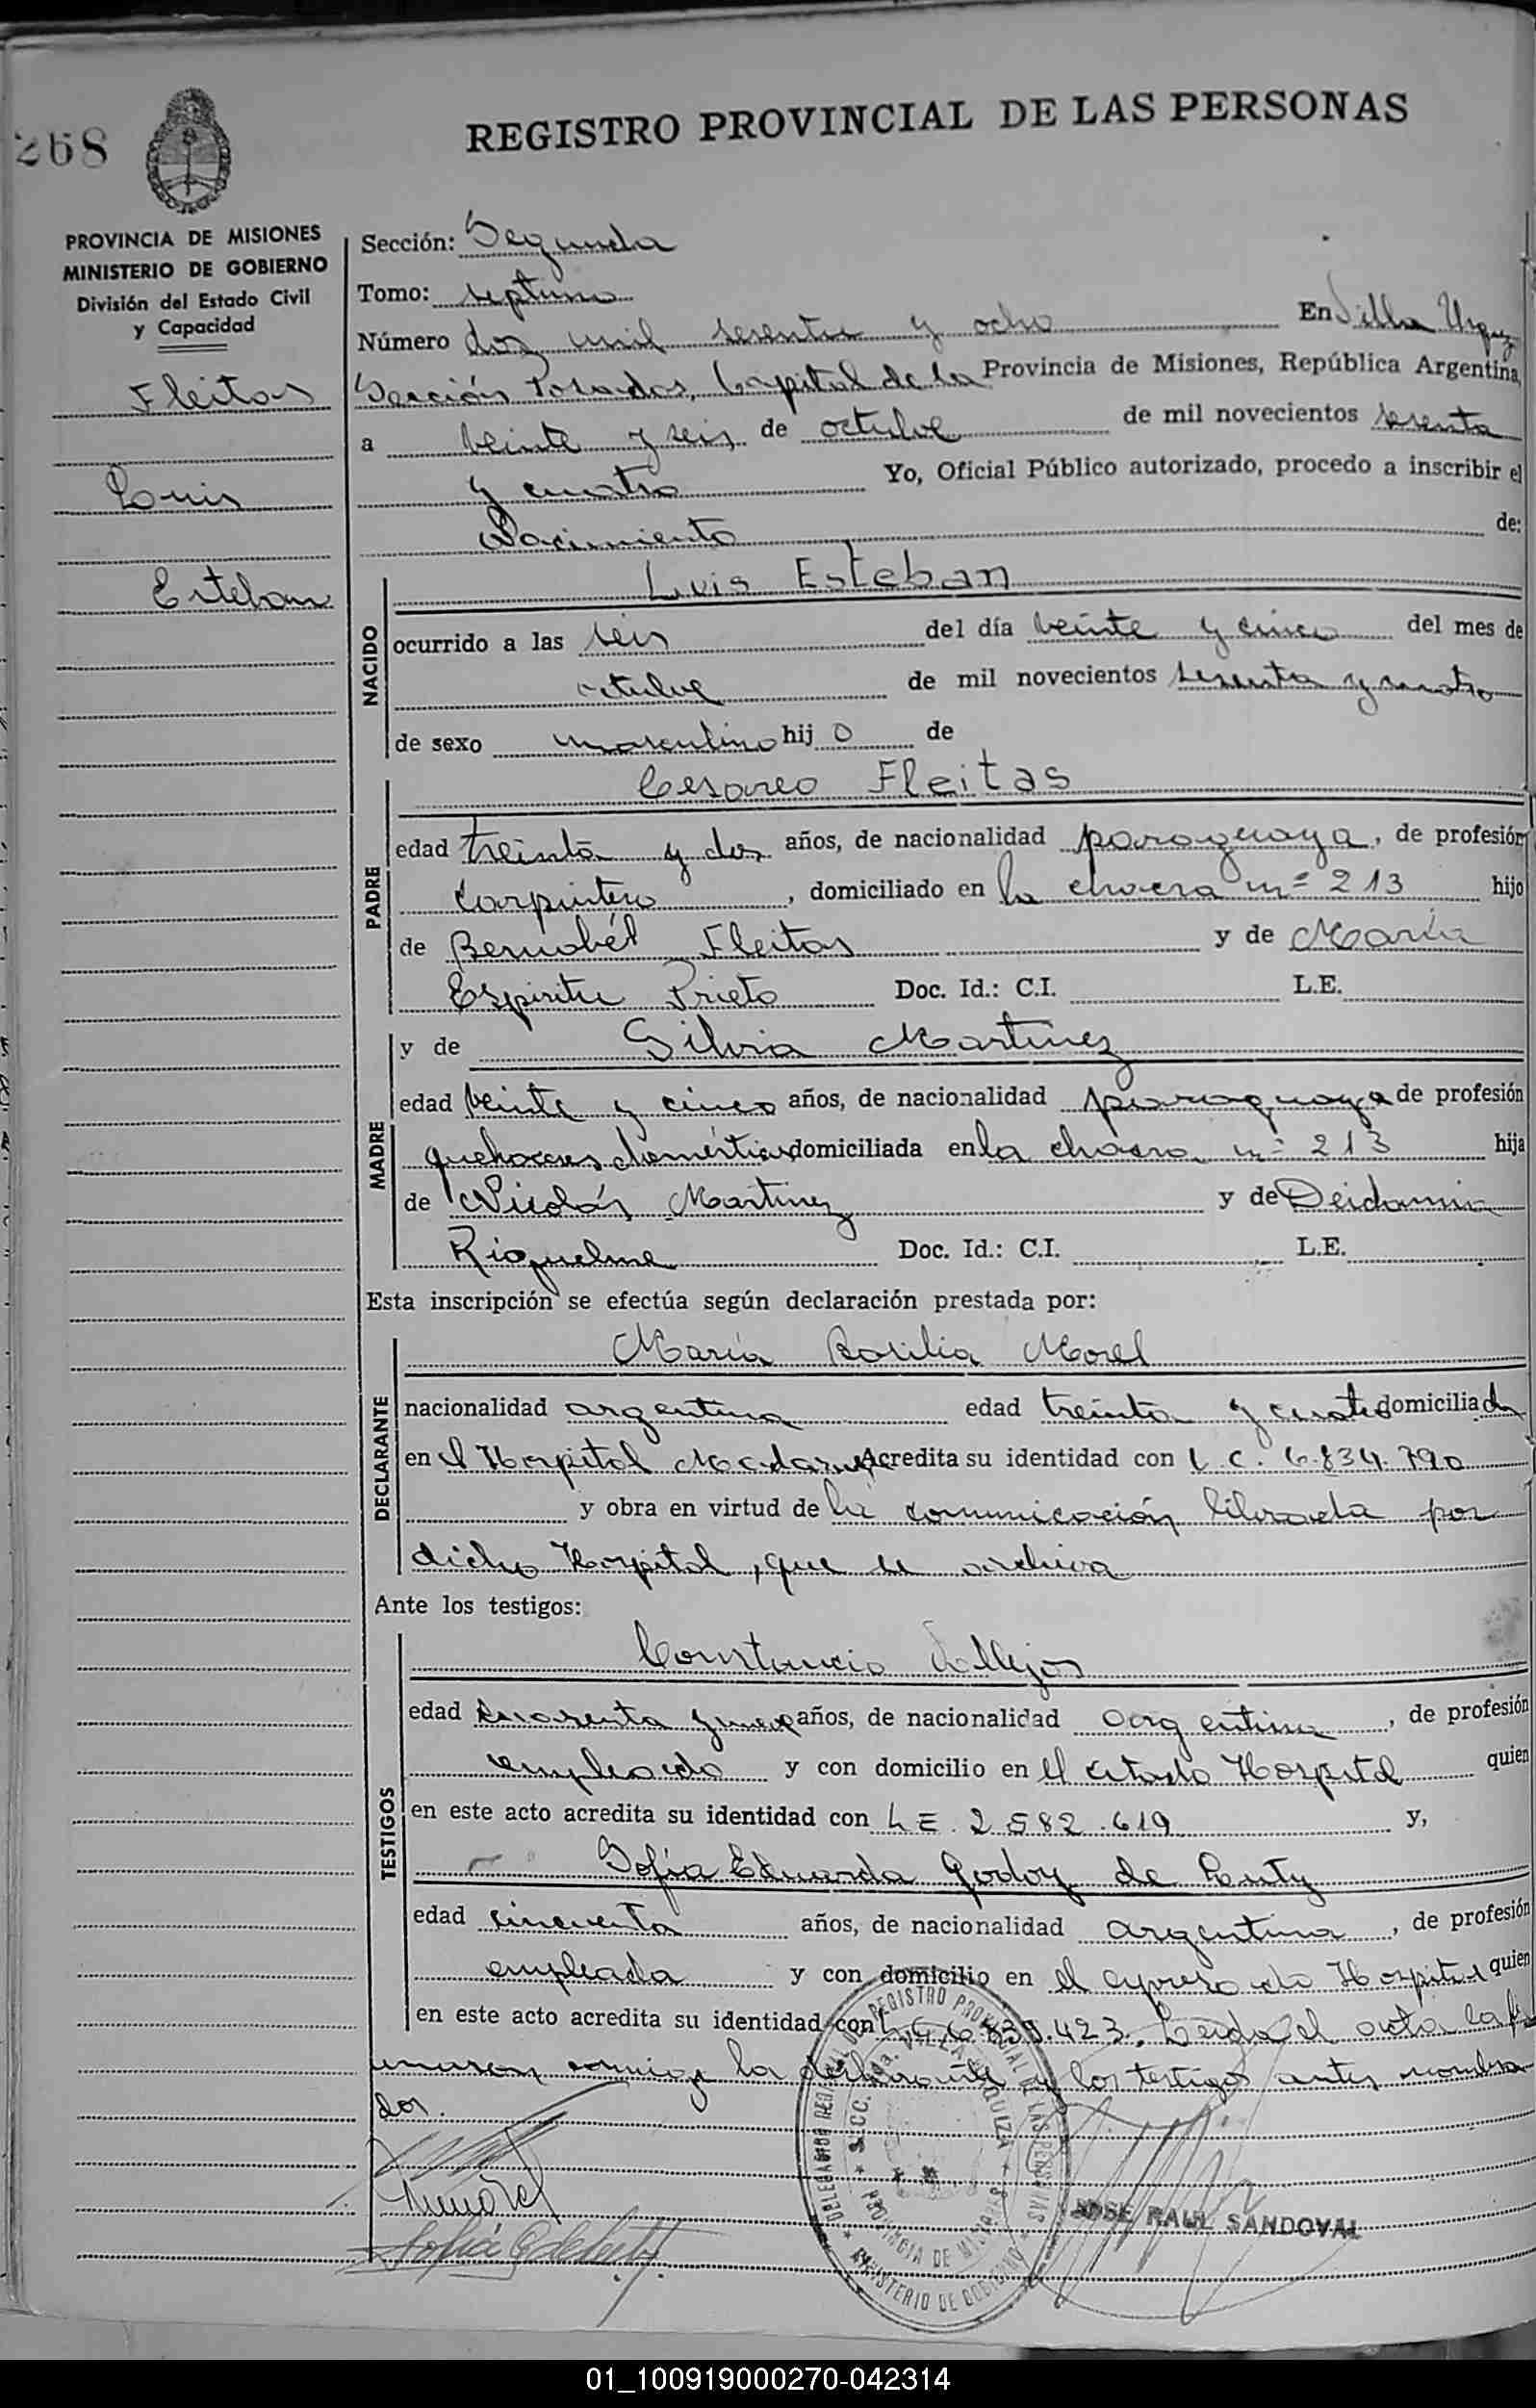 268
REGISTRO PROVINCIAL DE LAS PERSONAS
PROVINCIA DE MISIONES
MINISTERIO DE GOBIERNO
División del Estado Civil
y Capacidad
Fleitas
Luis
Esteban
Sección: Segunda
Tomo: septimo
Número dos mil sesenta y ocho En Villa Urquiza
Sección Posadas, Capital de la Provincia de Misiones, República Argentina,
a veinte y seis de octubre de mil novecientos sesenta
y cuatro Yo, Oficial Público autorizado, procedo a inscribir el
Nacimiento de:
NACIDO
Luis Esteban
ocurrido a las seis del día veinte y cinco del mes de
octubre de mil novecientos sesenta y cuatro
de sexo masculino hij o de
PADRE
Cesareo Fleitas
edad treinta y dos años, de nacionalidad paraguaya, de profesión
carpintero, domiciliado en la chacra nº 213 hijo
de Bernabél Fleitas y de María
Espiritu Prieto Doc. Id.: C.I. L.E.
MADRE
y de Silvia Martinez
edad veinte y cinco años, de nacionalidad paraguaya de profesión
quehaceres domésticos domiciliada en la chacra nº 213 hija
de Nicolás Martinez y de Deidamia
Riquelme Doc. Id.: C.I. L.E.
Esta inscripción se efectúa según declaración prestada por:
DECLARANTE
María Basilia Morel
nacionalidad argentina edad treinta y cuatro domiciliada
en el Hospital Madariaga Acredita su identidad con L.C. 6.834.790
y obra en virtud de la comunicación librada por
dicho Hospital, que se archiva
Ante los testigos:
TESTIGOS
Constancio Vallejos
edad cuarenta y nueve años, de nacionalidad argentina, de profesión
empleado y con domicilio en el citado Hospital quien
en este acto acredita su identidad con L E. 2.582.619 y,
Sofia Eduarda Godoy de
edad cincuenta años, de nacionalidad argentina, de profesión
empleada y con domicilio en el expresado Hospital quien
en este acto acredita su identidad con L.C. 6.839.423. Leida el acta la fir
maron conmigo la declarante y los testigos antes nombra
dos.
DELEGACION REGISTRO PROVINCIAL DE LAS PERSONAS
SECC. 2da. VILLA URQUIZA
PROVINCIA DE MISIONES
MINISTERIO DE GOBIERNO
JOSE RAUL SANDOVAL
01_100919000270-042314